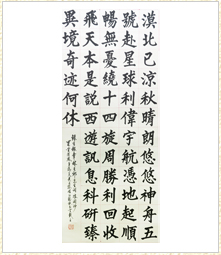 漠北已涼秋晴朗悠悠神舟五
號赴星球利偉宇航憑地起順
暢無憂繞十四旋周勝利回收
飛天本是説西遊訊息科研臻
異境奇迹何休